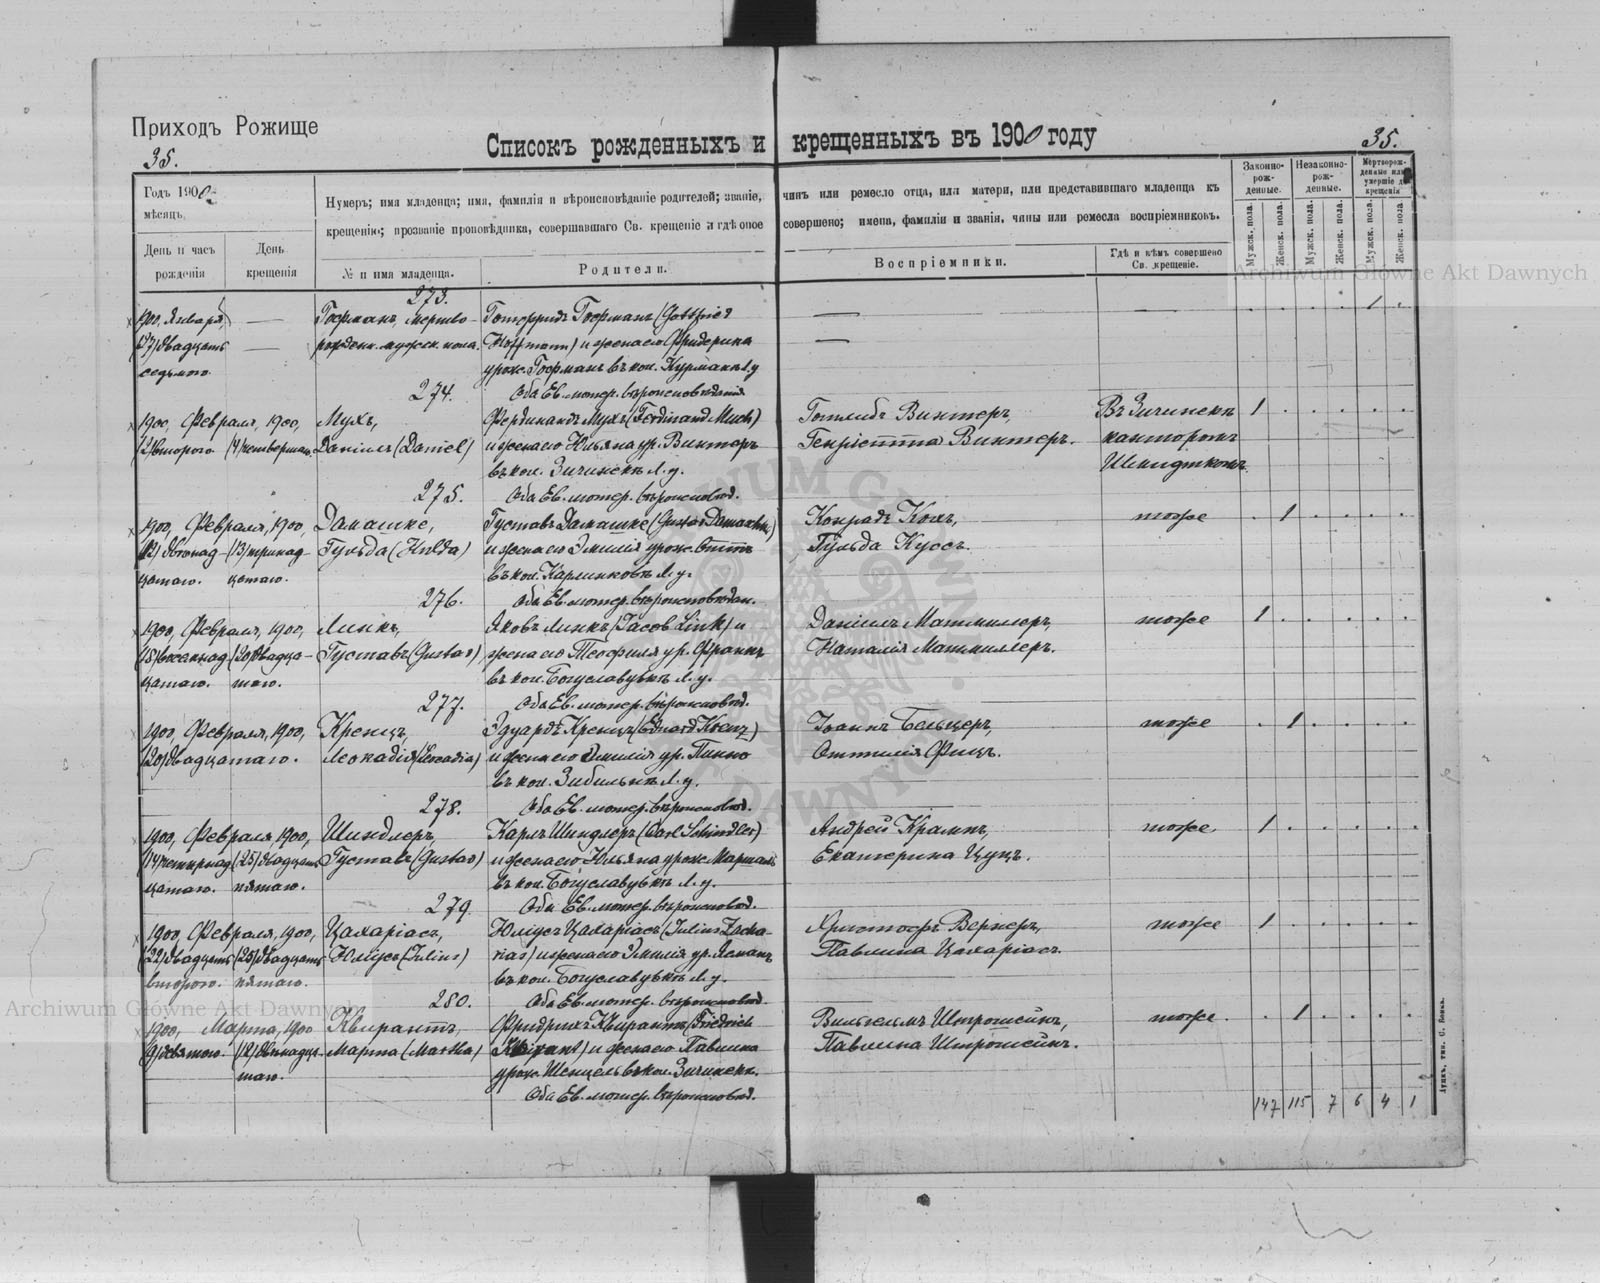 Приходъ Рожище
35.
Списокъ рожденныхъ и крещенныхъ въ 1900 году
35.
Годъ 1900
мѣсяцъ.
День и часъ рожденія
День крещенія
Нумеръ; имя младенца; имя, фамилія и вѣроисповѣданіе родителей; званіе, чинъ или ремесло отца, или матери, или представившаго младенца къ
крещенію; прозваніе проповѣдника, совершавшаго Св. крещеніе и гдѣ оное совершено; имена, фамиліи и званія, чины или ремесла воспріемниковъ.
№ и имя младенца.
Родители.
Воспріемники.
Гдѣ и кѣмъ совершено Св. крещеніе.
Законно-рож-денные.
Незаконно-рож-денные.
Мертворож-денные или умершіе до крещенія
Мужск. пола.
Женск. пола.
Мужск. пола.
Женск. пола.
Мужск. пола.
Женск. пола.
273.
1900, Января,
(27) двадцать
седьмого.
Гофманъ, мертво-
рожден. мужск. пола.
Готфридъ Гофманъ (Gottfried
Hoffmann) и жена его Фридерика
урож. Гофманъ въ кол. Л. у
Оба Ев. лютер. вѣроисповѣданія
1
274.
1900, Февраля, 1900,
(2) второго (4) четвертаго.
Мухъ,
Даніилъ (Daniel)
Фердинандъ Мухъ (Ferdinand Much)
и жена его Юльяна ур. Винтеръ
въ кол. Зичинекъ Л. у.
Оба Ев. лютер. вѣроисповѣд.
Готлибъ Винтеръ,
Генріетта Винтеръ.
Въ Зичинекъ
канторомъ
Шмидткомъ
1
275.
1900, Февраля, 1900,
(12) двѣнад- (13) тринад-
цатаго. цатаго.
Дамашке,
Гульда (Hulda)
Густавъ Дамашке (Gustav Damaschke)
и жена его Эмилія урож. Оттъ
въ кол. Карлинковъ Л. у.
Оба Ев. лютер. вѣроисповѣдан.
Конрадъ Кохъ,
Гульда Куссъ.
тоже
1
276.
1900, Февраля, 1900,
(18) восемнад- (20) двадца-
цатаго. таго.
Линкъ,
Густавъ (Gustav)
Яковъ Линкъ (Jacob Link) и
жена его Теофиля ур. Франкъ
въ кол. Богуславувкѣ Л. у.
Оба Ев. лютер. вѣроисповѣд.
Даніилъ Матмиллеръ,
Наталія Матмиллеръ.
тоже
1
277.
1900, Февраля, 1900,
(20) двадцатаго.
Кренцъ,
Леокадія (Leocadia)
Эдуардъ Кренцъ (Eduard Krenz)
и жена его Эмилія ур. Панно
въ кол. Зибилькѣ Л. у.
Оба Ев. лютер. вѣроисповѣд.
Іоаннъ Бельцеръ,
Оттилія Фицъ.
тоже
1
278.
1900, Февраля 1900,
(14) четырнад- (25) двадцать
цатаго. пятаго.
Шиндлеръ,
Густавъ (Gustav)
Карлъ Шиндлеръ (Carl Schindler)
и жена его Юльяна урож. Маршалъ
въ кол. Богуславувкѣ Л. у.
Оба Ев. лютер. вѣроисповѣд.
Андрей Крампъ,
Екатерина Цуцъ.
тоже.
1
279.
1900 Февраля, 1900,
(22) двадцать (25) двадцать
второго. пятаго.
Цахаріасъ,
Юліусъ (Julius)
Юліусъ Цахаріасъ (Julius Zacha-
rias) и жена его Эмилія ур. Ясманъ
въ кол. Богуславувкѣ Л. у.
Оба Ев. лютер. вѣроисповѣд.
Христофъ Вернеръ,
Павлина Цахаріасъ.
тоже
1
280.
1900, Марта, 1900
(9) девятаго. (12) двѣнадца-
таго.
Квирантъ,
Марта (Martha)
Фридрихъ Квирантъ (Friedrich
Kwirant) и жена его Павлина
урож. Шенцель въ кол. Зичинекъ.
Оба Ев. лютер. вѣроисповѣд.
Вильгельмъ Штрошейнъ,
Павлина Штрошейнъ.
тоже.
1
147 115 7 6 4 1
Луцкъ, тип. С. Бонка.
Archiwum Główne Akt Dawnych
Archiwum Główne Akt Dawnych